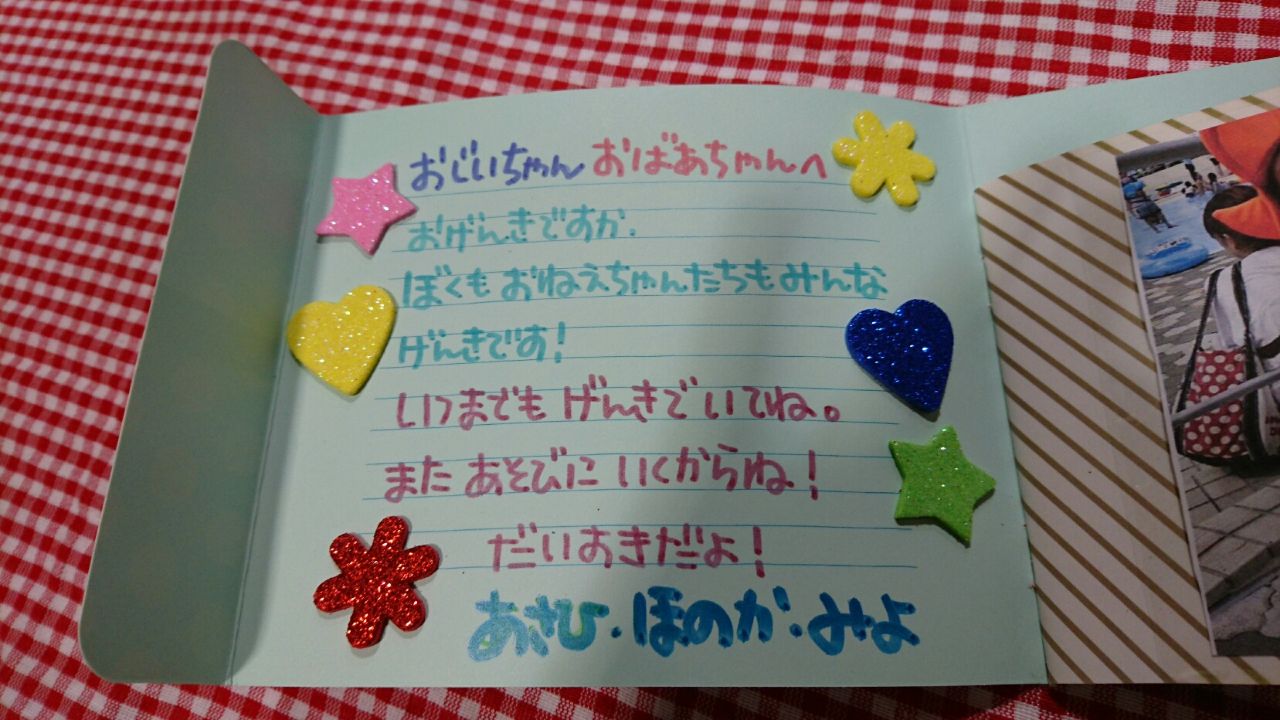 おじいちゃん おばあちゃんへ
おげんきですか.
ぼくも おねえちゃんたちもみんな
げんきです!
いつまでも げんきで いてね。
また あそびに いくからね!
だいおきだよ!
あさひ.ほのか.みよ